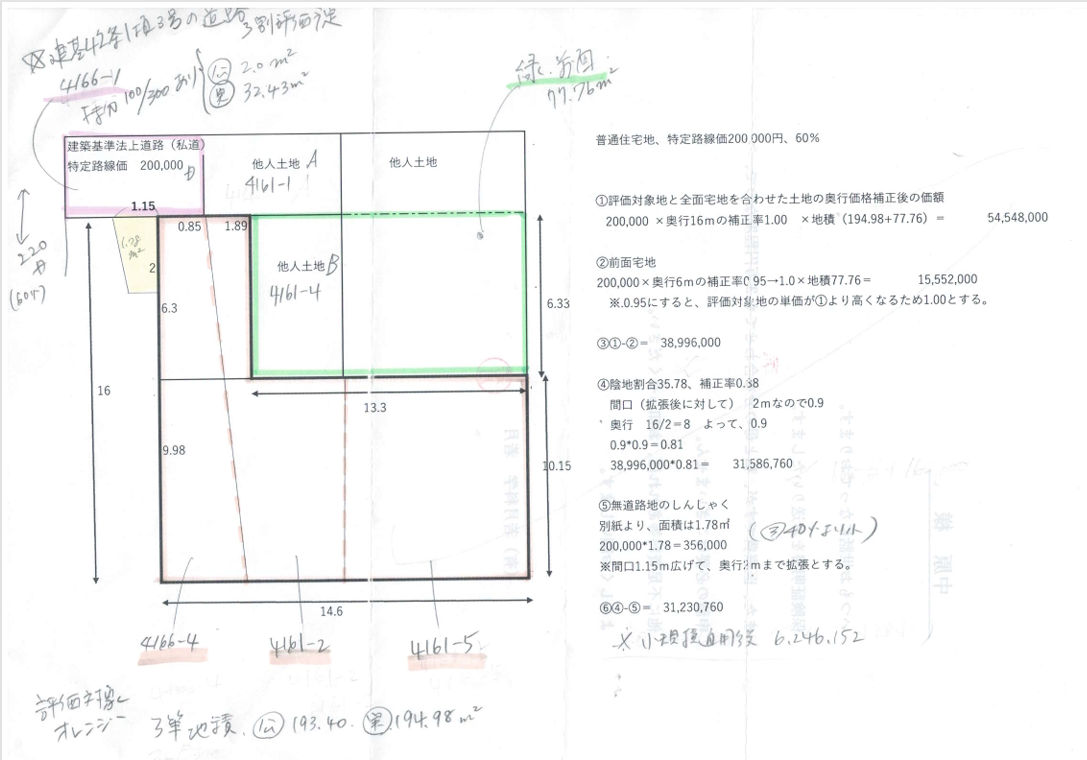 ※建基42条1項3号の道路 3割評価で
4166-1
持分100/300あり
公 2.0m²
実 32.43m²
緑、前面
77.76m²
建築基準法上道路（私道）
特定路線価 200,000円
他人土地 A
4161-1
他人土地
1.15
0.85 1.89
1.78㎡
2
220円
(60%)
他人土地 B
4161-4
6.3
6.33
16
13.3
9.98
10.15
14.6
4166-4
4161-2
4161-5
評価対象
オレンジ
3筆地積、公 193.40、実 194.98m²
普通住宅地、特定路線価200,000円、60%
①評価対象地と全面宅地を合わせた土地の奥行価格補正後の価額
200,000 ×奥行16mの補正率1.00 ×地積（194.98+77.76）＝ 54,548,000
②前面宅地
200,000×奥行6mの補正率0.95→1.0×地積77.76＝ 15,552,000
※0.95にすると、評価対象地の単価が①より高くなるため1.00とする。
③①-②＝ 38,996,000
④陰地割合35.78、補正率0.88
間口（拡張後に対して） 2mなので0.9
奥行 16/2＝8 よって、0.9
0.9*0.9＝0.81
38,996,000*0.81＝ 31,586,760
⑤無道路地のしんしゃく
別紙より、面積は1.78㎡
200,000*1.78＝356,000 (③40%より小)
※間口1.15m広げて、奥行2mまで拡張とする。
⑥④-⑤＝ 31,230,760
※小規模適用後 6,246,152